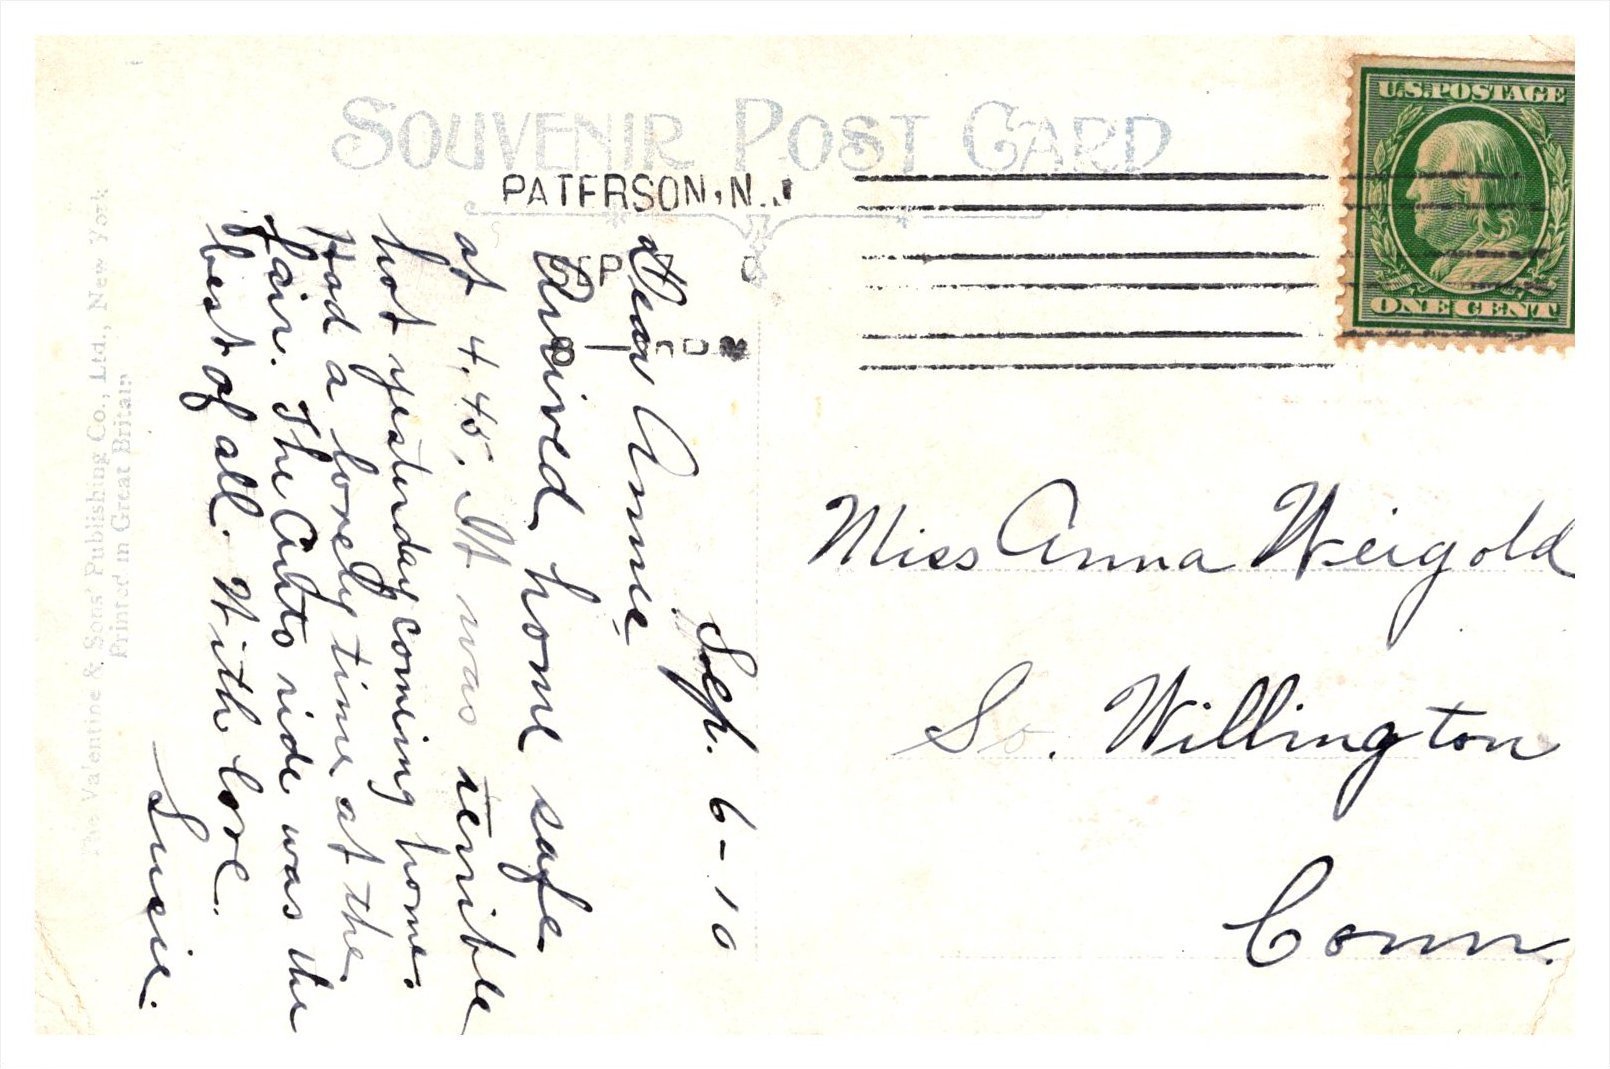 SOUVENIR POST CARD
U.S. POSTAGE
ONE CENT
PATERSON, N.J.
SEP
Sep. 6-10
Dear Anna
Arrived home safe
at 4.45. It was terrible
hot yesterday coming home.
Had a lovely time at the
fair. The Auto ride was the
best of all. With love
Susie.
Miss Anna Weigold
So. Willington
Conn.
The Valentine & Sons' Publishing Co., Ltd., New York
Printed in Great Britain